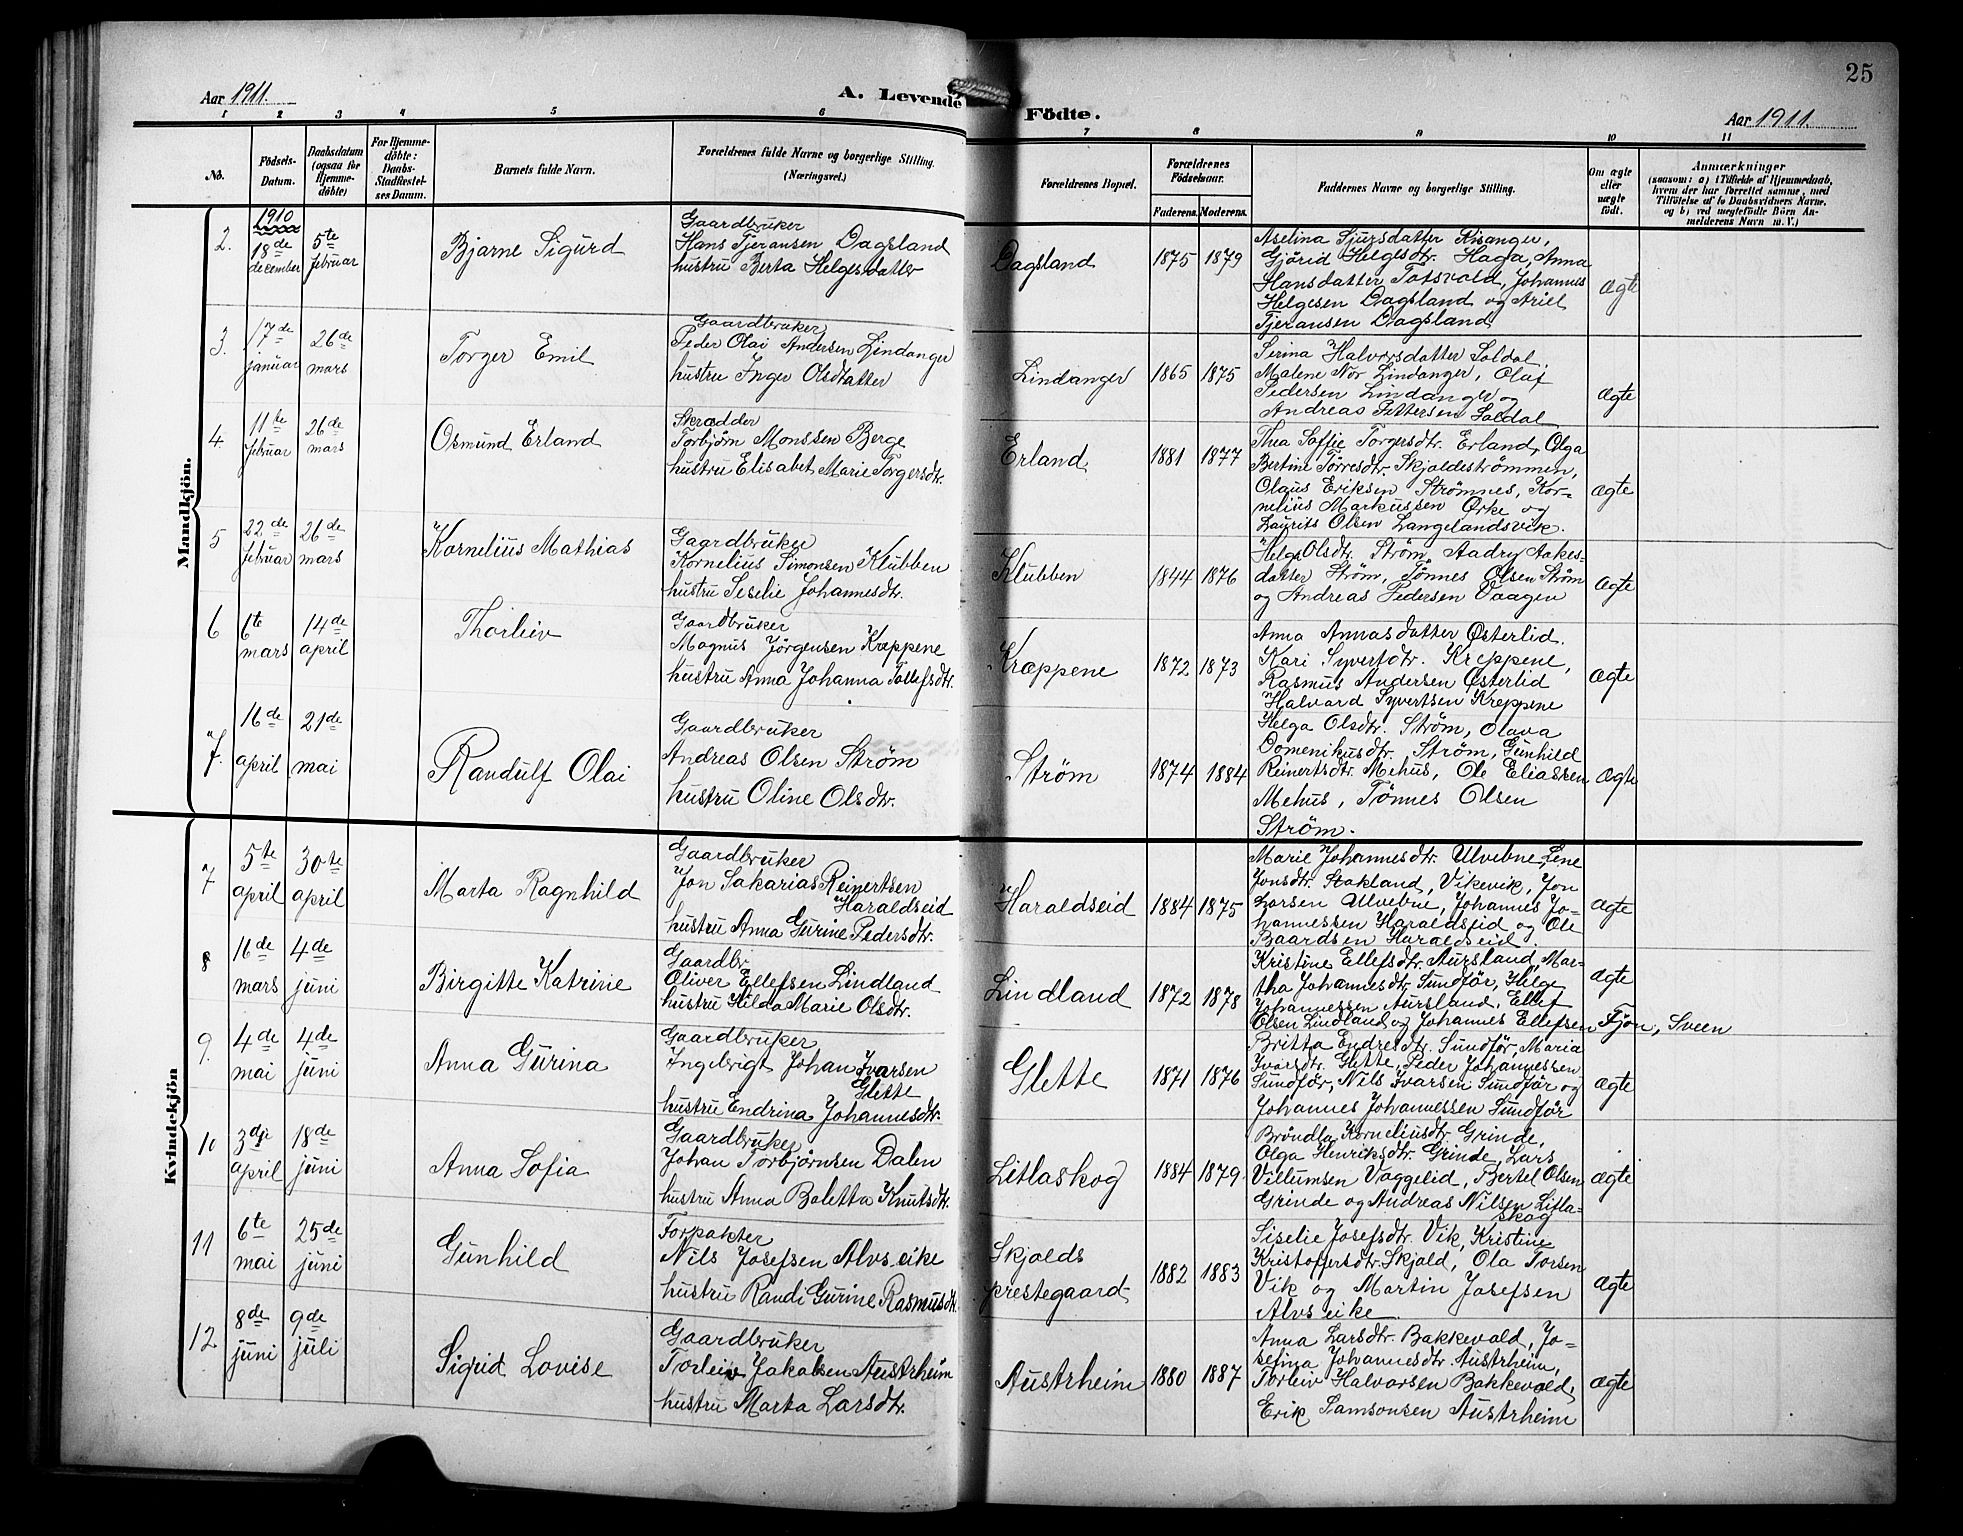 25
Aar 1911.
A. Levende Födte.
Aar 1911.
1 2 3 4 5 6 7 8 9 10 11
No.
Födsels-
Datum.
Daabsdatum
(ogsaa for
Hjemme-
döbte)
For Hjemme-
döbte:
Daabs-
Stadfæstel-
ses Datum.
Barnets fulde Navn.
Forældrenes fulde Navne og borgerlige Stilling.
(Næringsvei.)
Forældrenes Bopæl.
Forældrenes
Födselsaar.
Faderens. Moderens.
Faddernes Navne og borgerlige Stilling.
Om ægte
eller
uægte
födt.
Anmærkninger
(saasom: a) i Tilfælde af Hjemmedaab,
hvem der har forrettet samme, med
Tilföielse af to Daabsvidners Navne,
og b) ved uægtefödte Börn An-
melderens Navn m. V.)
Mandkjön.
2.
1910
18de
december
5te
februar
Bjarne Sigurd
Gaardbruker
Hans Tjeransen Dagsland
hustru Berta Helgesdatter
Dagsland
1875 1879
Aselina Sjursdatter Risanger,
Gjörid Helgesdtr. Haga, Anna
Hansdatter Totsvold, Johannes
Helgesen Dagsland og Ariel
Tjeransen Dagsland
Ægte
3.
17de
januar
26de
mars
Torger Emil
Gaardbruker
Peder Olai Andersen Lindanger
hustru Inger Olsdatter
Lindanger
1865 1875
Serina Halvorsdatter Saldal
Malene Nor Lindanger, Olaf
Pedersen Lindanger og
Andreas Pettersen Saldal
Ægte
4.
11te
februar
26de
mars
Osmund Erland
Skrædder
Torbjørn Monssen Berge
hustru Elisabet Marie Torgersdtr.
Erland
1881 1877
Thea Sofie Torgersdtr. Erland, Olga
Bertine Tørresdtr. Skjoldestrømmen,
Olaus Eriksen Strømnes, Kor-
nelius Markussen Ørke og
Laurits Olsen Langelandsvik.
Ægte
5
22de
februar
26de
mars
Kornelius Mathias
Gaardbruker
Kornelius Simonsen Klubben
hustru Seselie Johannesdtr.
Klubben
1844 1876
Helga Olsdtr. Strøm, Aadry Aakes-
datter Strøm, Tønnes Olsen Strøm
og Andreas Pedersen Vaagen
Ægte
6
6te
mars
14de
april
Thorleiv
Gaardbruker
Magnus Jörgensen Kræppene
hustru Anna Johanna Tollefsdtr.
Kræppene
1872 1873
Anna Annasdatter Østerlid.
Kari Syvertdtr. Kreppene,
Rasmus Andersen Østerlid
Halvard Syvertsen Kreppene
Ægte
7.
16de
april
21de
mai
Randulf Olai
Gaardbruker
Andreas Olsen Strøm
hustru Oline Olsdtr.
Strøm
1874 1884
Helga Olsdtr. Strøm, Olava
Domenikusdtr. Strøm, Gunhild
Reinertsdtr. Mehus, Ole Eliassen
Mehus, Tønnes Olsen
Strøm.
Ægte
Kvindekjön
7
5te
april
30te
april
Marta Ragnhild
Gaardbruker
Jon Sakarias Reinertsen
Haraldseid
hustru Anna Gurine Pedersdtr.
Haraldseid
1884 1875
Marie Johannesdtr. Ulvebne, Lene
Jonsdtr. Stakland, Vikevik, Jon
Larsen Ulvebne, Johannes Jo-
hannessen Haraldseid og Ole
Baardsen Haraldseid.
Ægte
8
16de
mars
4de
juni
Birgitte Katrine
Gaardbr
Oliver Ellefsen Lindland
hustru Hilda Marie Olsdtr.
Lindland
1872 1878
Kristine Ellefsdtr. Aursland, Mar-
tha Johannesdtr. Sundför, Helge
Johannessen Aursland, Ellef
Olsen Lindland og Johannes Ellefsen Fjon, Sveen
Ægte
9.
4de
mai
4de
juni
Anna Gurina
Gaardbruker
Ingebrigt Johan Ivarsen
Glette
hustru Endrina Johannesdtr.
Glette
1871 1876
Britta Endresdtr. Sundför, Maria
Ivarsdtr. Glette, Peder Johannessen
Sundför, Nils Ivarsen Sundför og
Johannes Johannessen Sundför
Ægte
10
3dje
april
18de
juni
Anna Sofia
Gaardbruker
Johan Torbjørnsen Dalen
hustru Anna Boletta Knutsdtr.
Litlaskog
1884 1879.
Bröndla Korneliusdtr. Grinde,
Olga Henriksdtr. Grinde, Lars
Villumsen Vaggelid, Bertel Olsen
Grinde og Andreas Nilsen Litla-
skog
Ægte
11
6te
mai
25de
juni
Gunhild
Forpakter
Nils Josefsen Alvseike
hustru Randi Gurine Rasmusdtr.
Skjolds
prestegaard
1882 1883
Siselie Josefsdtr. Vik, Kristine
Kristoffersdtr. Skjold, Ola Torsen
Vik og Martin Josefsen
Alvseike
Ægte
12
8de
juni
9de
juli
Sigrid Lovise
Gaardbruker
Torleiv Jakobsen Austrheim
hustru Marta Larsdtr.
Austrheim
1880 1887
Anna Larsdtr. Bakkevold, Jo-
sefina Johannesdtr. Austrheim,
Torleiv Halvorsen Bakkevold,
Erik Samsonsen Austrheim
Ægte